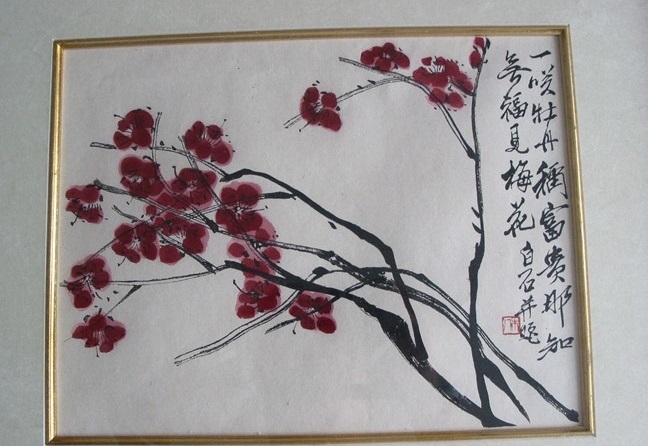 一咲牡丹稱富貴那知
無福見梅花 白石并題